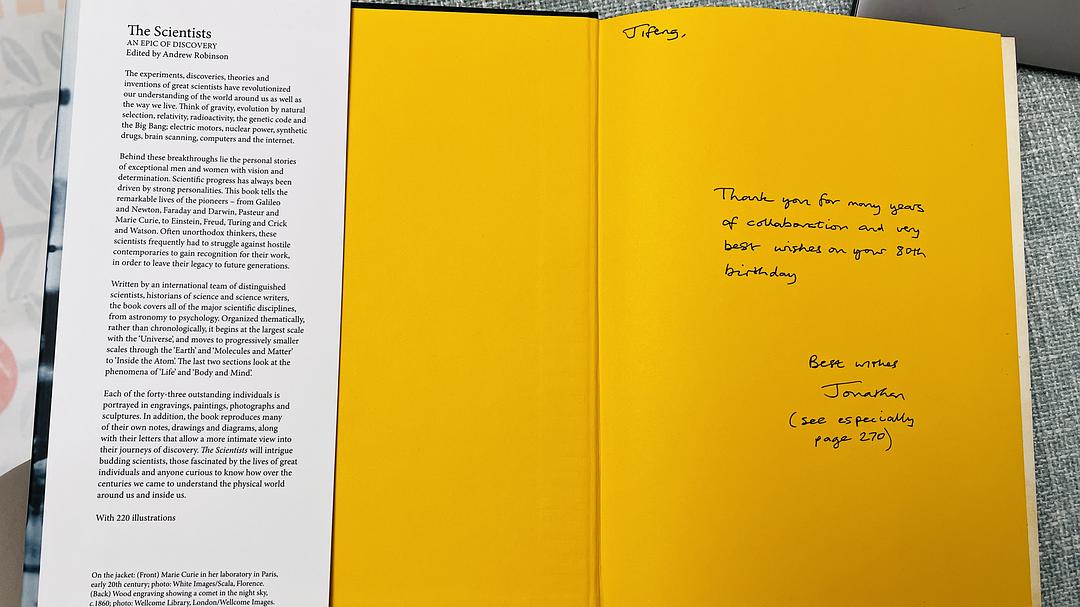 The Scientists
AN EPIC OF DISCOVERY
Edited by Andrew Robinson
The experiments, discoveries, theories and
inventions of great scientists have revolutionized
our understanding of the world around us as well as
the way we live. Think of gravity, evolution by natural
selection, relativity, radioactivity, the genetic code and
the Big Bang; electric motors, nuclear power, synthetic
drugs, brain scanning, computers and the internet.
Behind these breakthroughs lie the personal stories
of exceptional men and women with vision and
determination. Scientific progress has always been
driven by strong personalities. This book tells the
remarkable lives of the pioneers – from Galileo
and Newton, Faraday and Darwin, Pasteur and
Marie Curie, to Einstein, Freud, Turing and Crick
and Watson. Often unorthodox thinkers, these
scientists frequently had to struggle against hostile
contemporaries to gain recognition for their work,
in order to leave their legacy to future generations.
Written by an international team of distinguished
scientists, historians of science and science writers,
the book covers all of the major scientific disciplines,
from astronomy to psychology. Organized thematically,
rather than chronologically, it begins at the largest scale
with the ‘Universe’, and moves to progressively smaller
scales through the ‘Earth’ and ‘Molecules and Matter’
to ‘Inside the Atom’. The last two sections look at the
phenomena of ‘Life’ and ‘Body and Mind’.
Each of the forty-three outstanding individuals is
portrayed in engravings, paintings, photographs and
sculptures. In addition, the book reproduces many
of their own notes, drawings and diagrams, along
with their letters that allow a more intimate view into
their journeys of discovery. The Scientists will intrigue
budding scientists, those fascinated by the lives of great
individuals and anyone curious to know how over the
centuries we came to understand the physical world
around us and inside us.
With 220 illustrations
On the jacket: (Front) Marie Curie in her laboratory in Paris,
early 20th century; photo: White Images/Scala, Florence.
(Back) Wood engraving showing a comet in the night sky,
c.1860; photo: Wellcome Library, London/Wellcome Images.
Jifeng,
Thank you for many years
of collaboration and very
best wishes on your 80th
birthday
Best wishes
Jonathan
(see especially
page 270)